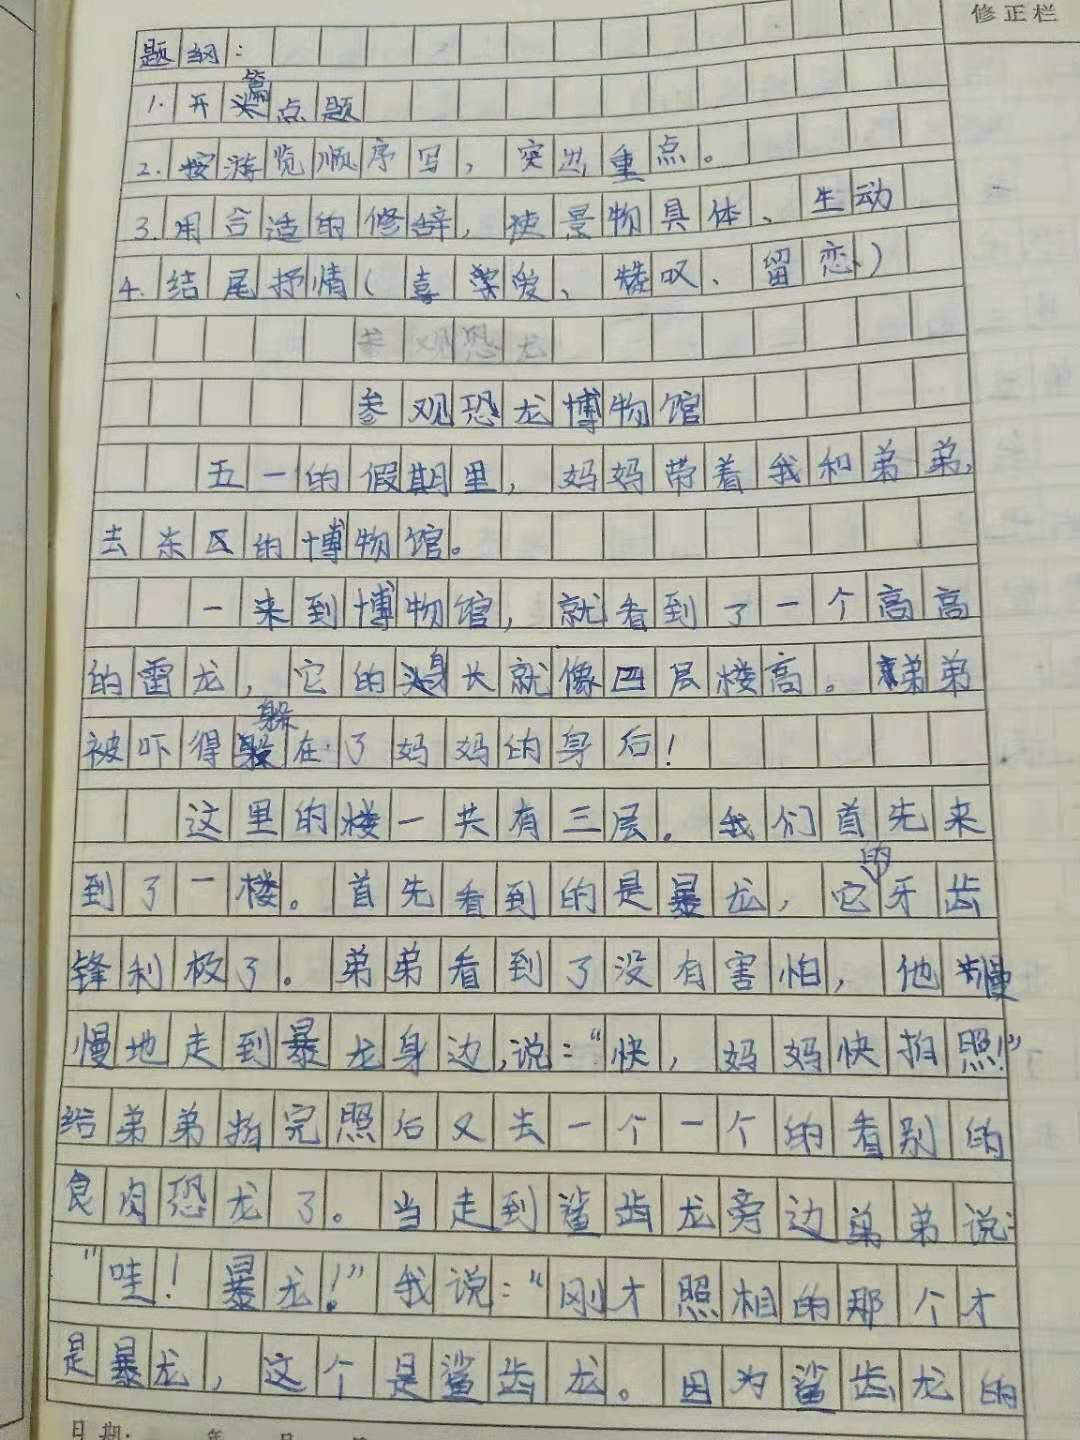 修正栏
题纲：
1.开篇点题
2.按游览顺序写，突出重点。
3.用合适的修辞，使景物具体、生动
4.结尾抒情（喜爱、赞叹、留恋）
参观恐龙
参观恐龙博物馆
五一的假期里，妈妈带着我和弟弟，
去东区的博物馆。
一来到博物馆，就看到了一个高高
的雷龙，它的身长就像四层楼高。弟弟
被吓得躲在了妈妈的身后！
这里的楼一共有三层。我们首先来
到了一楼。首先看到的是暴龙，它的牙齿
锋利极了。弟弟看到了没有害怕，他慢
慢地走到暴龙身边，说：“快，妈妈快拍照！”
给弟弟拍完照后又去一个一个的看别的
食肉恐龙了。当走到鲨齿龙旁边弟弟说：
“哇！暴龙！”我说：“刚才照相的那个才
是暴龙，这个是鲨齿龙。因为鲨齿龙的
日期： 年 月